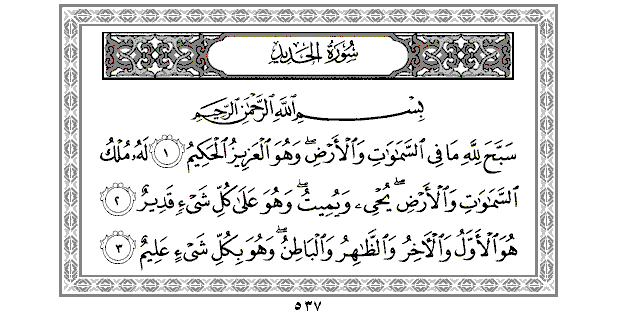 سُورَةُ الحَدِيدِ
بِسْمِ اللَّهِ الرَّحْمَٰنِ الرَّحِيمِ
سَبَّحَ لِلَّهِ مَا فِى السَّمَٰوَٰتِ وَالْأَرْضِ ۖ وَهُوَ الْعَزِيزُ الْحَكِيمُ ١ لَهُۥ مُلْكُ
السَّمَٰوَٰتِ وَالْأَرْضِ ۖ يُحْىِۦ وَيُمِيتُ ۖ وَهُوَ عَلَىٰ كُلِّ شَىْءٍ قَدِيرٌ ٢
هُوَ الْأَوَّلُ وَالْآخِرُ وَالظَّٰهِرُ وَالْبَاطِنُ ۖ وَهُوَ بِكُلِّ شَىْءٍ عَلِيمٌ ٣
٥٣٧